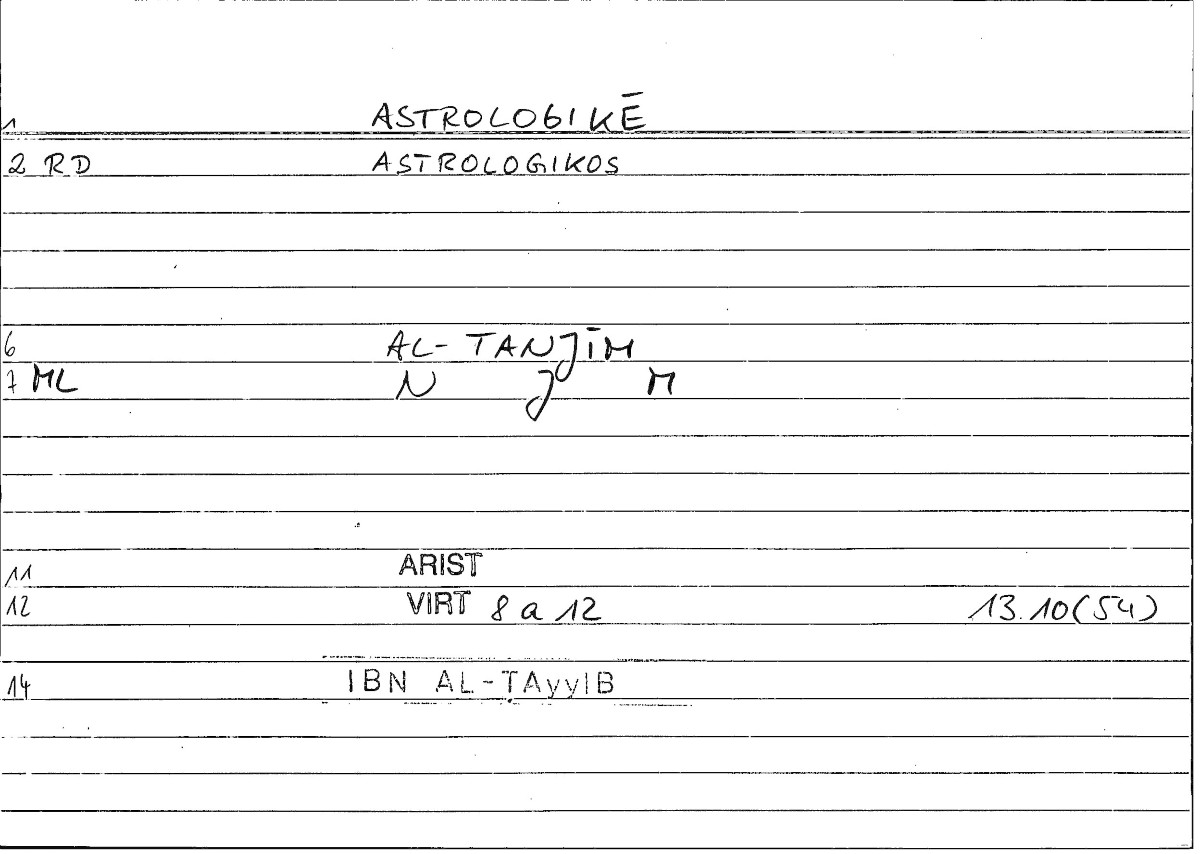 1 ASTROLOGIKĒ
2 RD ASTROLOGIKOS
6 AL-TANJĪM
7 ML N J M
11 ARIST
12 VIRT 8 a 12 13.10(54)
14 IBN AL-ṬAyyIB